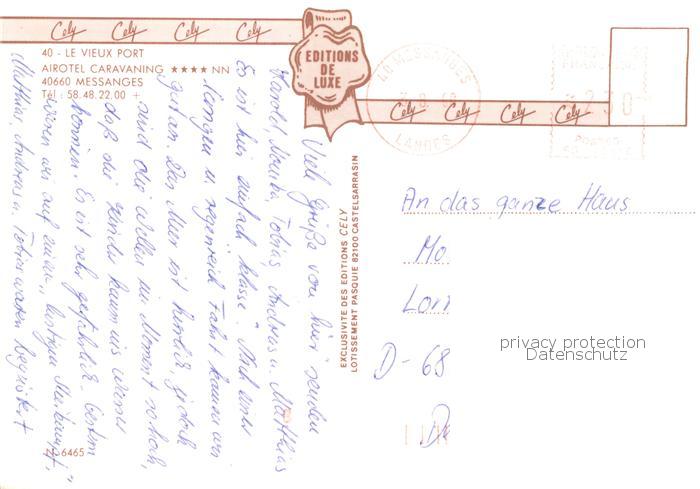 Cely Cely Cely Cely
40 - LE VIEUX PORT
AIROTEL CARAVANING ★★★★ NN
40660 MESSANGES
Tél : 58.48.22.00 +
EDITIONS
DE
LUXE
Cely Cely Cely Cely
40 MESSANGES
LANDES
230
POSTES
EXCLUSIVITE DES EDITIONS CELY
LOTISSEMENT PASQUIE 82100 CASTELSARRASIN
Viele Grüße von hier senden
Harold, Monika, Tobias, Andreas u. Matthias
Es ist hier einfach klasse! Nach einer
langen u. regenreich Fahrt kamen wir
gut an. Das Meer ist herrlich, jedoch
sind die Wellen im Moment so hoch,
daß die Kinder kaum ins Wasser
können. Es ist sehr gefährlich. Gestern
waren wir auf einem "lustigen Stierkampf",
Matthias, Andreas u. Tobias waren begeistert
An das ganze Haus
Mo
Lorr
D-68
N° 6465
privacy protection
Datenschutz